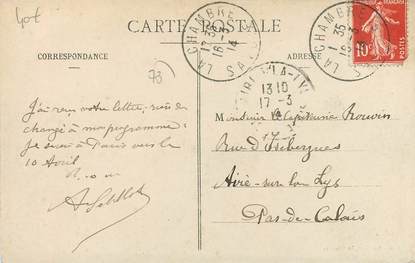 Lot
CARTE POSTALE
CORRESPONDANCE
ADRESSE
73
LA CHAMBRE
17 35
16 - 3
14
LA CHAMBRE
1 35
16 - 3
10
13 10
17 - 3
J'ai reçu votre lettre, rien de
changé à mon programme
Je serai à Paris vers le
10 Avril
Monsieur le Capitaine Rouvin
Rue d'Isbergues
Aire-sur-la Lys
Pas-de-Calais